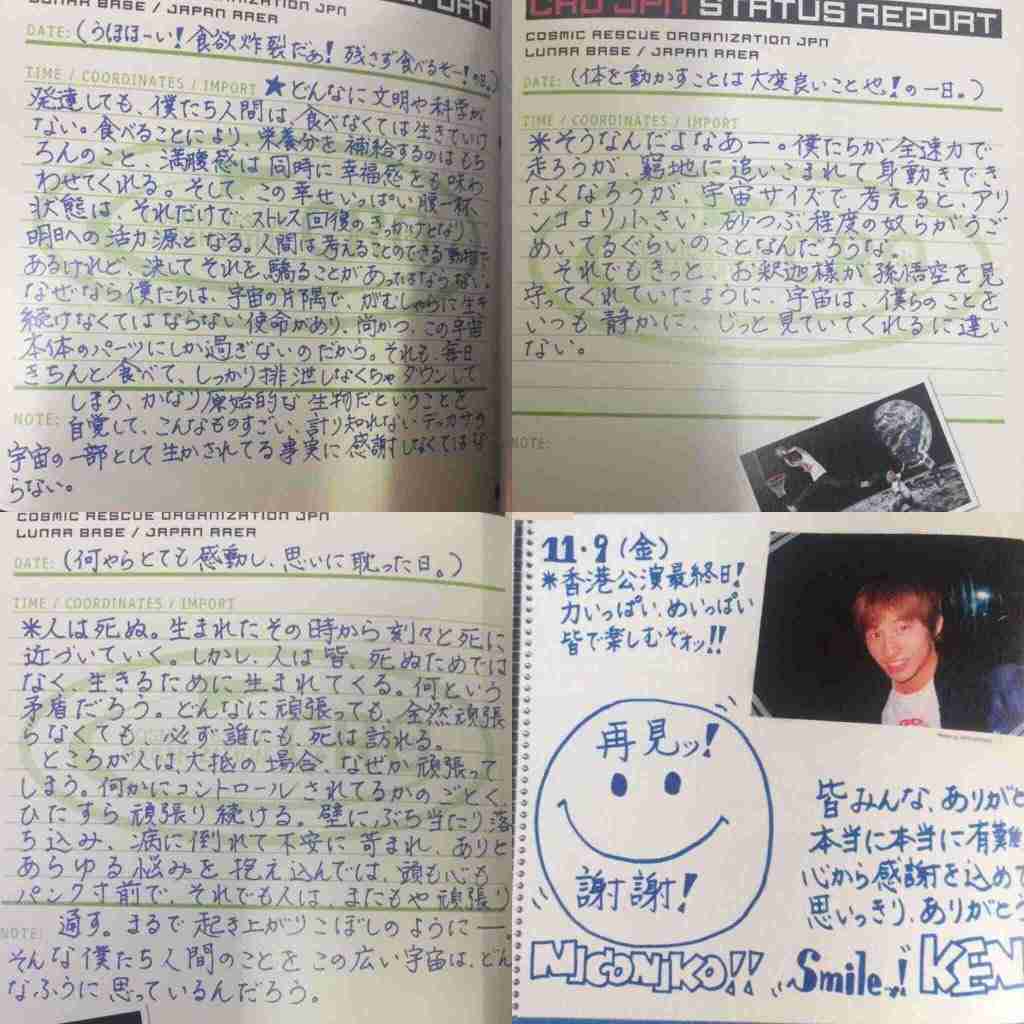 REPORT
COSMIC RESCUE ORGANIZATION JPN
LUNAR BASE / JAPAN AREA
DATE: (うほほーい!食欲炸裂だぁ!残さず食べるぞー!の日。)
TIME / COORDINATES / IMPORT ★どんなに文明や科学が
発達しても、僕たち人間は、食べなくては生きていけ
ない。食べることにより、栄養分を補給するのはもち
ろんのこと、満腹感は同時に幸福感をも味わ
わせてくれる。そして、この幸せいっぱい腹一杯
状態は、それだけで、ストレス回復のきっかけとなり
明日への活力源となる。人間は考えることのできる動物で
あるけれど、決してそれを驕ることがあってはならない。
なぜなら僕たちは、宇宙の片隅で、がむしゃらに生き
続けなくてはならない使命があり、尚かつ、この宇宙
本体のパーツにしか過ぎないのだから。それも、毎日
きちんと食べて、しっかり排泄しなくちゃダウンして
しまう、かなり原始的な生物だということを
NOTE: 自覚して、こんなものすごい、計り知れないデッカサの
宇宙の一部として生かされてる事実に感謝しなくてはな
らない。
CRO JPN STATUS REPORT
COSMIC RESCUE ORGANIZATION JPN
LUNAR BASE / JAPAN AREA
DATE: (体を動かすことは大変良いことや!の一日。)
TIME / COORDINATES / IMPORT
*そうなんだよなあー。僕たちが全速力で
走ろうが、窮地に追いこまれて身動きでき
なくなろうが、宇宙サイズで考えると、アリ
ンコより小さい、砂つぶ程度の奴らがうご
めいてるぐらいのことなんだろうな。
それでもきっと、お釈迦様が孫悟空を見
守ってくれていたように、宇宙は、僕らのことを
いつも静かに、じっと見ていてくれるに違い
ない。
NOTE:
COSMIC RESCUE ORGANIZATION JPN
LUNAR BASE / JAPAN AREA
DATE: (何やらとても感動し、思いに耽った日。)
TIME / COORDINATES / IMPORT
*人は死ぬ。生まれたその時から刻々と死に
近づいていく。しかし、人は皆、死ぬためでは
なく、生きるために生まれてくる。何という
矛盾だろう。どんなに頑張っても、全然頑張
らなくても、必ず誰にも、死は訪れる。
ところが人は、大抵の場合、なぜか頑張って
しまう。何かにコントロールされてるかのごとく、
ひたすら頑張り続ける。壁にぶち当たり落
ち込み、病に倒れて不安に苛まれ、ありと
あらゆる悩みを抱え込んでは、頭も心も
パンク寸前で、それでも人は、またもや頑張り
通す。まるで起き上がりこぼしのようにー。
NOTE:
そんな僕たち人間のことをこの広い宇宙は、どん
なふうに思っているんだろう。
11・9(金)
*香港公演最終日!
力いっぱい、めいっぱい
皆で楽しむぞオッ!!
再見ッ!
謝謝!
皆みんな、ありがと
本当に本当に有難
心から感謝を込めて
思いっきり、ありがとう
NICONIKO!! Smile! KEN